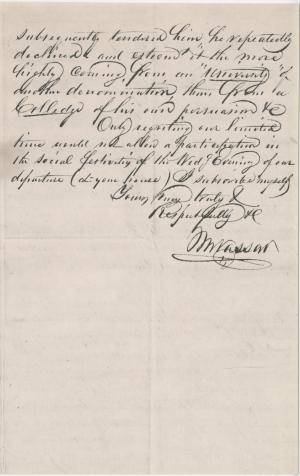 subsequently tendered him, he repeatedly
declined & and esteemd it the more
highly coming from an "University" of
another denomination, than from a
College of his own persuasion &c
Only regretting our limited
time would not allow a participation in
the social festivity of the Wedy Evening of our
departure (at your house) I subscribe myself
Yours very truly &
Respectfully &c
M Vassar